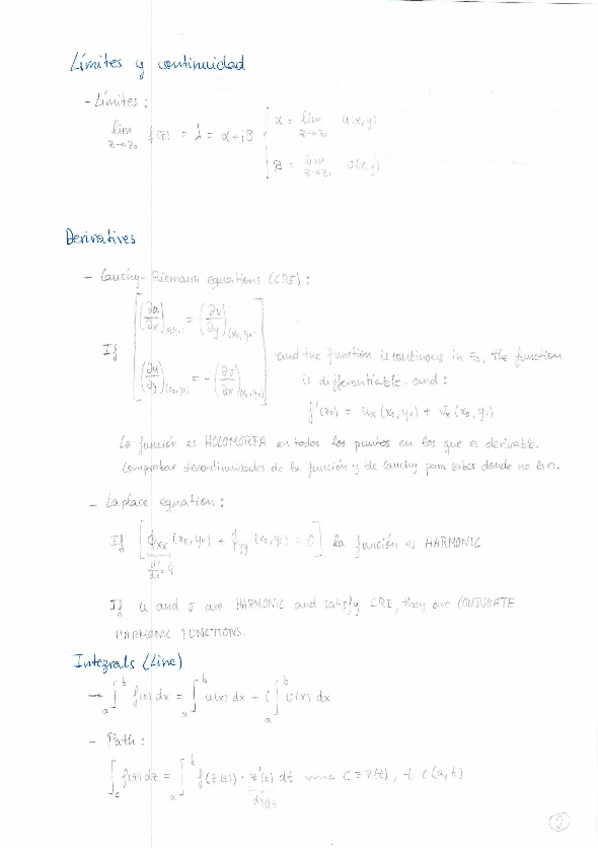 Límites y continuidad
- Límites:
lim z→z₀ f(z) = λ = α + iβ [ α = lim z→z₀ u(x,y)
β = lim z→z₀ v(x,y)
Derivatives
- Cauchy-Riemann equations (CRE):
If [ (∂u/∂x)(x₀,y₀) = (∂v/∂y)(x₀,y₀)
(∂u/∂y)(x₀,y₀) = -(∂v/∂x)(x₀,y₀) ] and the function is continous in z₀, the function
is differentiable and:
f'(z₀) = uₓ(x₀,y₀) + vₓ(x₀,y₀)
La función es HOLOMORFA en todos los puntos en los que es derivable.
Comprobar discontinuidades de la función y de Cauchy para saber donde no lo es.
- Laplace equation:
If [ ϕxx(x₀,y₀) + ϕyy(x₀,y₀) = 0 ] la función es HARMONIC
If u and v are HARMONIC and satisfy CRE, they are CONJUGATE
HARMONIC FUNCTIONS.
Integrals (Line)
→ ∫ₐᵇ f(x) dx = ∫ₐᵇ u(x) dx + i ∫ₐᵇ v(x) dx
- Path:
∫c f(z) dz = ∫ₐᵇ f(z(t)) · z'(t) dt C ≡ z(t), t ∈ (a,b)
dz/dt
2